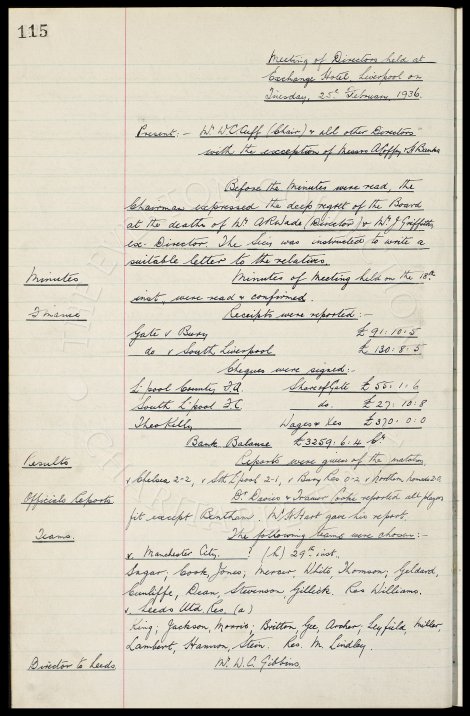 115
Meeting of Directors held at
Exchange Hotel, Liverpool on
Tuesday, 25th February, 1936.
Present: - Mr W.C. Cuff (Chair) & all other Directors
with the exception of Messrs A Coffey & A Banks
Before the Minutes were read, the
Chairman expressed the deep regret of the Board
at the deaths of Mr A R Wade (Director) & Mr J Griffiths
ex-Director. The Secy was instructed to write a
suitable letter to the relatives.
Minutes Minutes of Meeting held on the 18th
inst, were read & confirmed.
Finance Receipts were reported:-
Gate v Bury £ 91: 10: 5
do v South Liverpool £ 130: 8: 5
Cheques were signed:-
L'pool County F.A. Share of Gate £ 55: 1: 6
South L'pool F.C. do. £ 27: 10: 8
Theo Kelly Wages & Xes £ 370: 0: 0
Bank Balance £3259: 6: 4 Cr.
Results Reports were given of the matches,
v Chelsea 2-2, v Sth L'pool 2-1, v Bury Res 0-2, v Northern
Officials Reports Dr Davies & Trainer Cooke reported all players
fit except Bentham. W. Hart gave his report.
Teams. The following teams were chosen:-
v. Manchester City. (h) 29th inst.
Sagar; Cook, Jones; Mercer, White, Thomson; Geldard,
Cunliffe, Dean, Stevenson, Gillick. Res Williams.
v. Leeds Utd Res. (a)
King; Jackson, Morris; Britton, Gee, Archer, Leyfield, Miller,
Lambert, Hannon, Stein. Res. M. Lindley.
Director to Leeds. Mr. W. C. Gibbins.